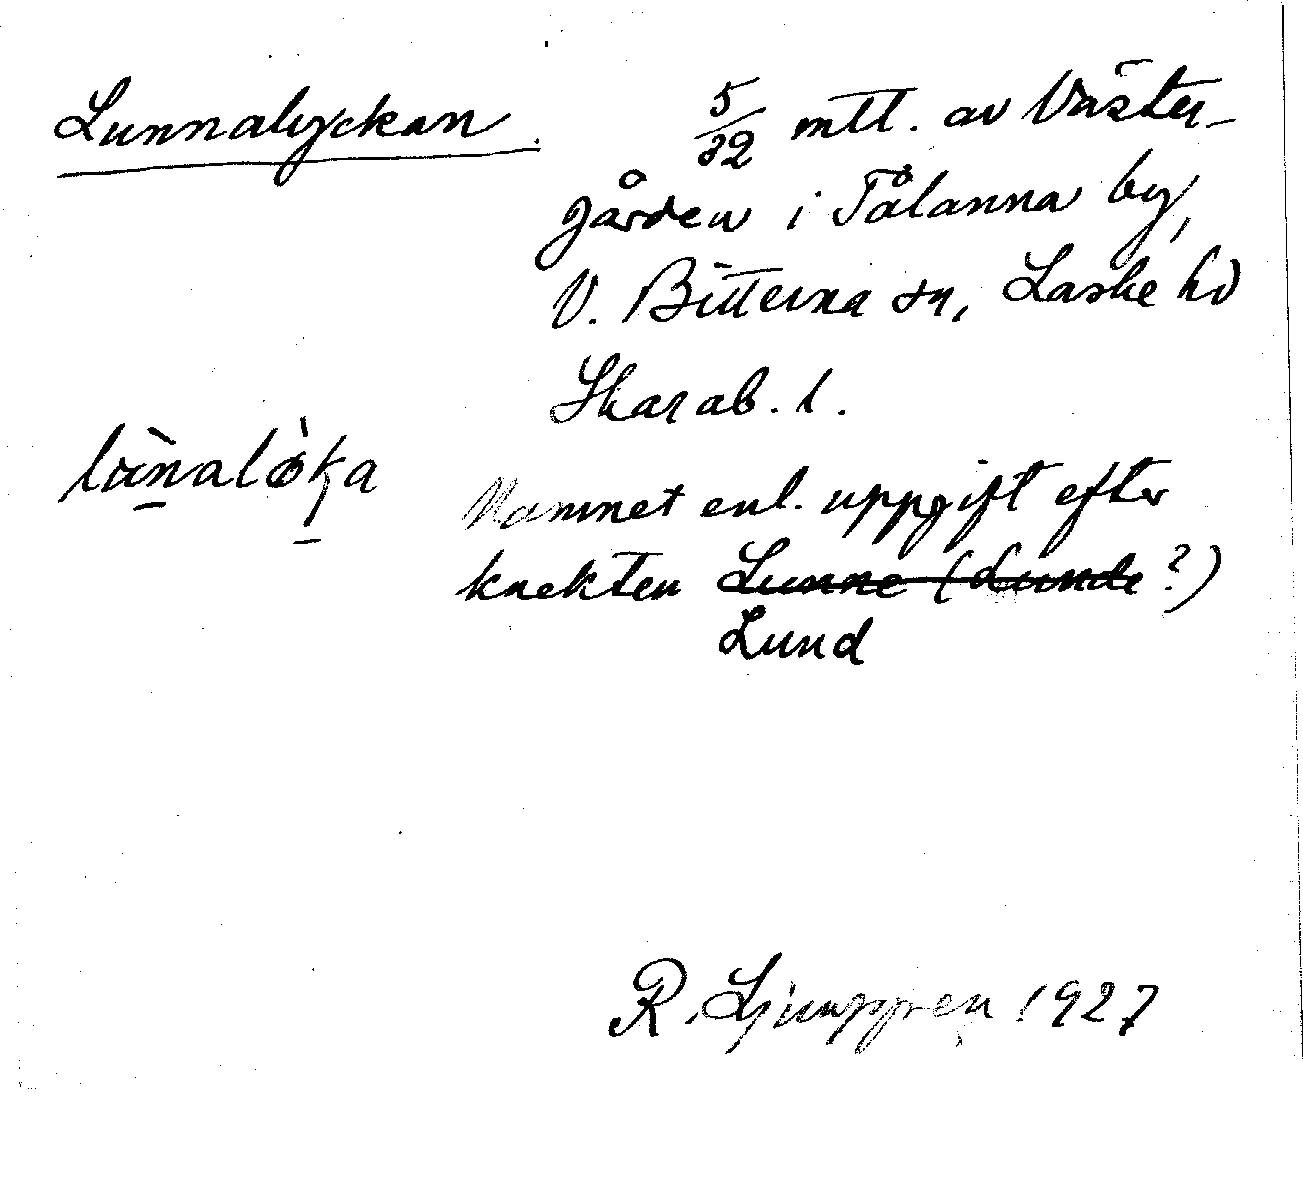 Lunnalyckan.
5/32 mtl. av Väster-
gården i Tålanna by,
V. Bitterna sn, Laske hd
Skarab. l.
Namnet enl. uppgift efter
knekten Lunne (Lunde?)
Lund
R. Ljunggren 1927